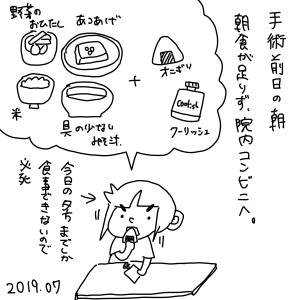 手術前日の朝
朝食が足りず、院内コンビニへ。
野菜の
おひたし
あつあげ
米
具の少ない
みそ汁
+
オニギリ
Coolish
クーリッシュ
今日の夕方までしか
食事できないので
必死
2019.07